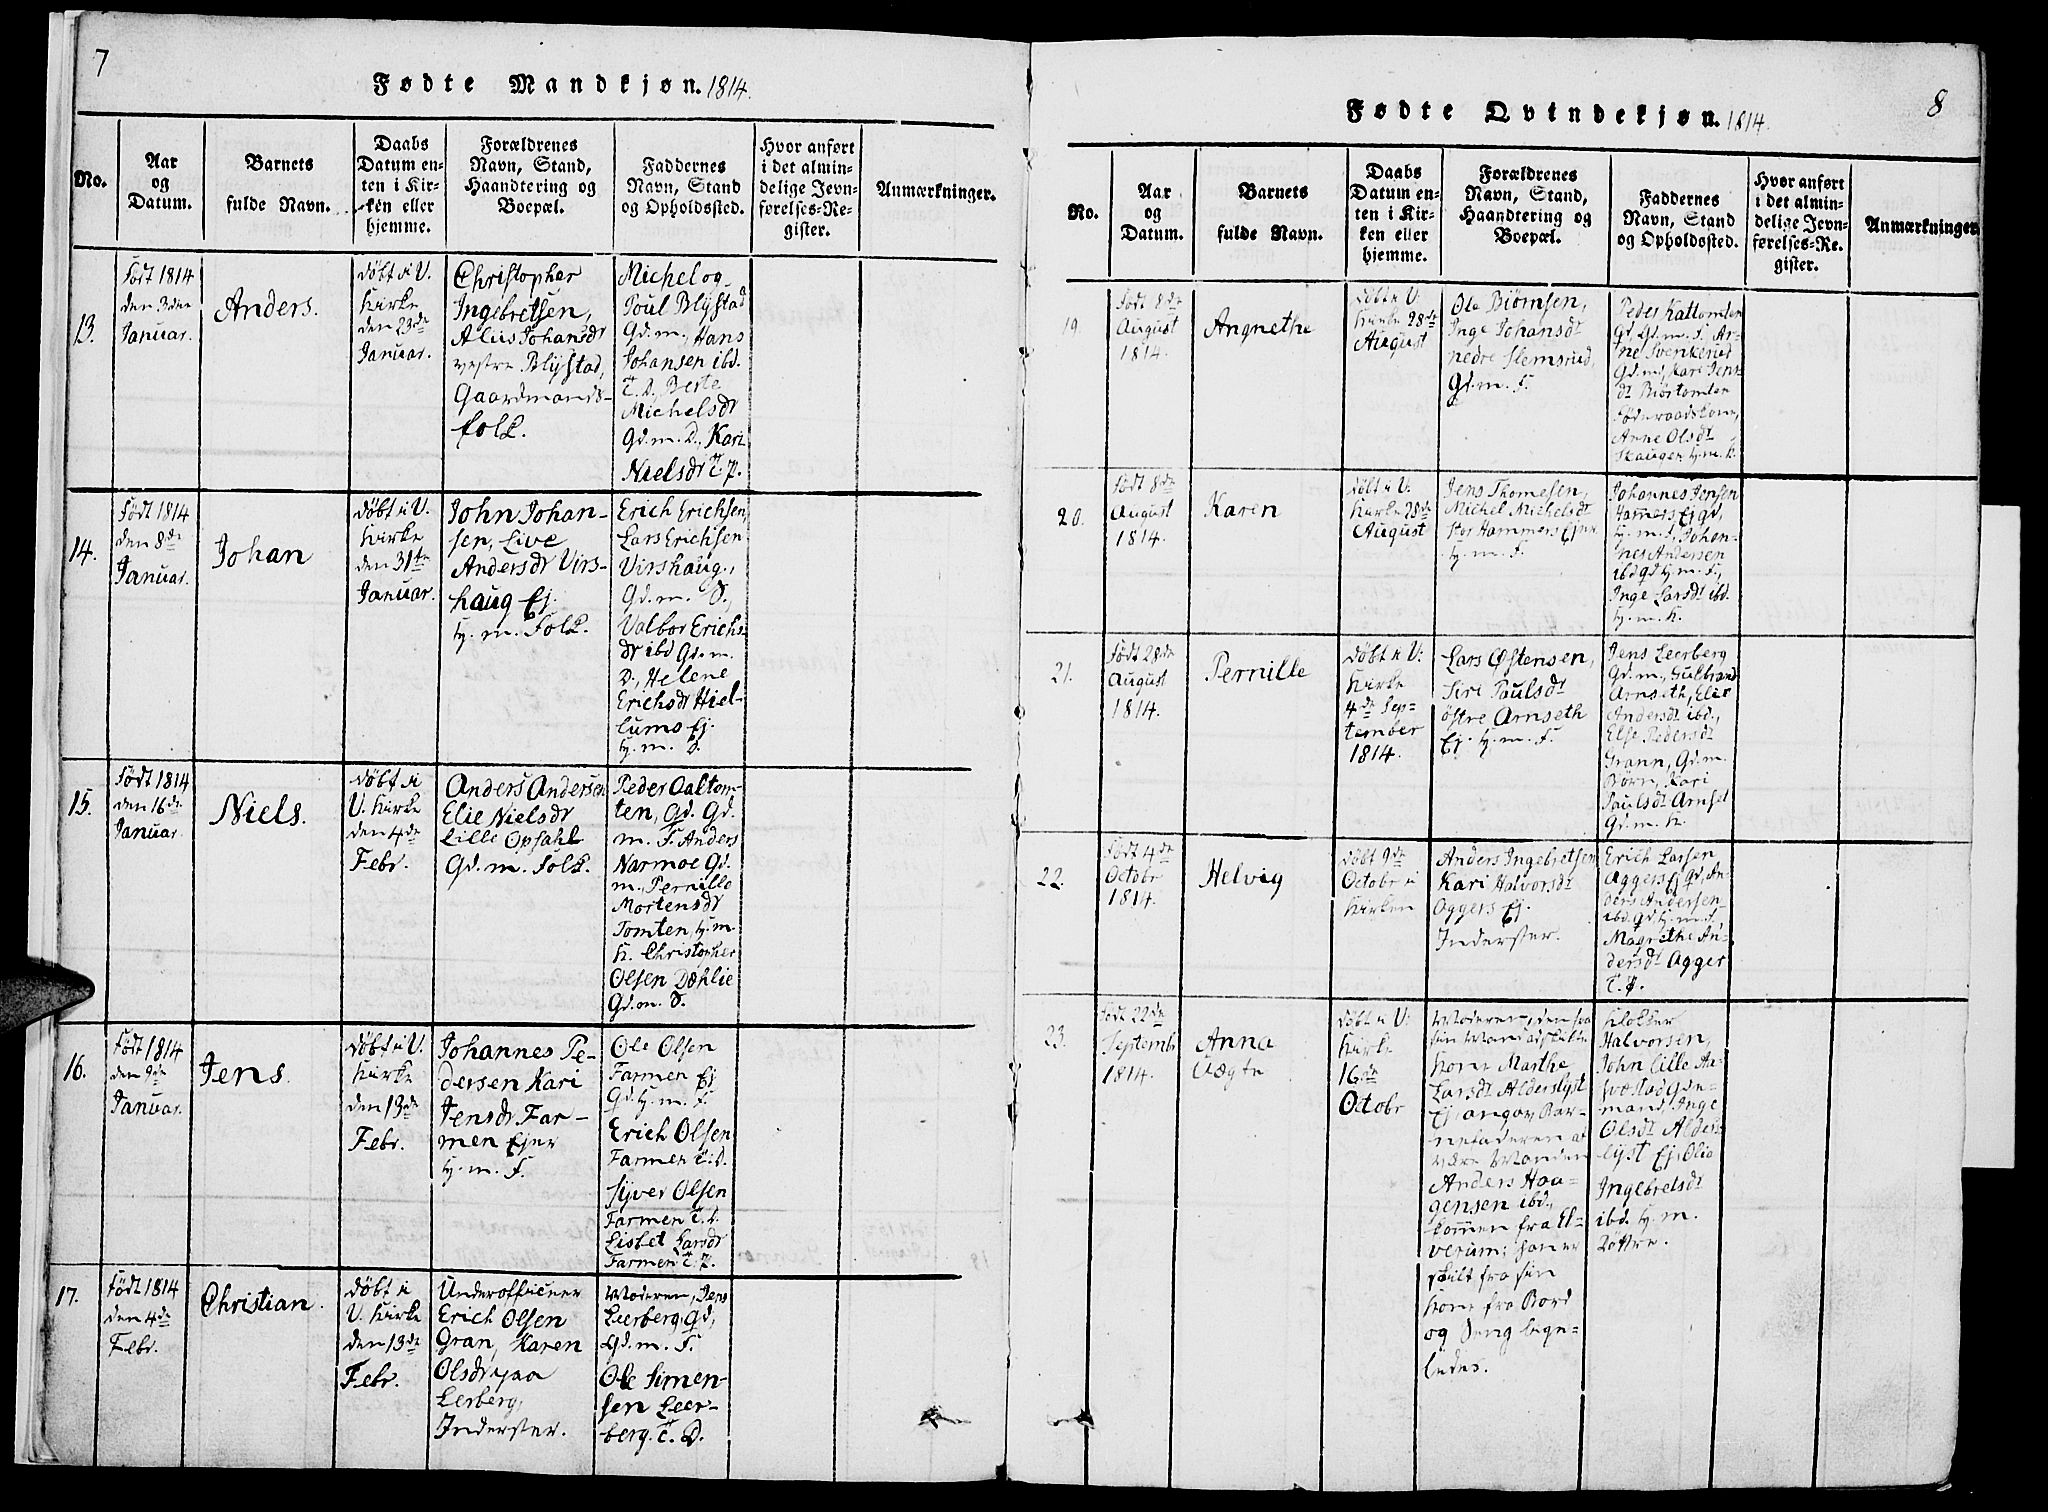 7
Fødte Mandkjøn. 1814.
No.
Aar
og
Datum.
Barnets
fulde Navn.
Daabs
Datum en-
ten i Kir-
ken eller
hjemme.
Forældrenes
Navn, Stand,
Haandtering og
Boepæl.
Faddernes
Navn, Stand
og Opholdssted.
Hvor anført
i det almin-
delige Jevn-
førelses-Re-
gister.
Anmærkninger.
13.
Født 1814
den 3den
Januar.
Anders.
døbt i V.
Kirke
den 23de
Januar.
Christopher
Ingebretsen,
Johansdr
vestre Blystad,
Gaardmands-
folk.
Michel og
Poul Blystad
Gd.m., Hans
Johansen ibd.
Berte
Michelsdr
Gd.m. D., Kari
Nielsdr
14.
Født 1814
den 8de
Januar.
Johan
døbt i V.
Kirke
den 31te
Januar.
John Johan-
sen, Live
Andersdr Virs-
haug Ej.
H. m. Folk.
Erich Erichsen,
Lars Erichsen
Virshaug,
Gd. m. S.,
Valbor Erichs-
dr ibd Gd. m.
D., Helene
Erichsdr Hiel-
lums Ej.
H. m. D.
15.
Født 1814
den 16de
Januar.
Niels.
døbt i
V. Kirke
den 4de
Febr.
Anders Andersen
Elie Nielsdr
Lille Opsahl
Gd. m. Folk.
Peder Oaltom-
ten, Gd. Gd.
m. F. Anders
Narmoe Gd.
m., Pernille
Mortensdr
Tomten, H. m.
K. Christopher
Olsen Dæhlie
Gd. m. S.
16.
Født 1814
den 9de
Januar.
Jens.
døbt i V.
Kirke
den 13de
Febr.
Johannes Pe-
dersen Kari
Jensdr Far-
men Ejer
H. m. F.
Ole Olsen
Farmen Ej
Gd. H. m. F.
Erich Olsen
Farmen
Syver Olsen
Farmen
Lisbet Larsdr
Farmen
17.
Født 1814
den 4de
Febr.
Christian.
døbt i
V. Kirke
den 13de
Febr.
Underofficeer
Erich Olsen
Gran, Karen
Olsdr paa
Lerberg,
Inderster.
Moderen, Jens
Leerberg Gd,
Gd. m. F.
Ole Simen-
sen Leer-
berg.
8
Fødte Qvindekjøn. 1814.
No.
Aar
og
Datum.
Barnets
fulde Navn.
Daabs
Datum en-
ten i Kir-
ken eller
hjemme.
Forældrenes
Navn, Stand,
Haandtering og
Boepæl.
Faddernes
Navn, Stand
og Opholdssted.
Hvor anført
i det almin-
delige Jevn-
førelses-Re-
gister.
Anmærkninger.
19.
Født 8de
August
1814.
Angnethe
døbt i V:
Kirke 28de
August
Ole Biørnsen,
Inge Johansdt
nedre Slemsrud,
Gd. m. F.
Peder Kattomten
Gd. Gd. m. F. Ar-
ne Svenkerud
Gd. m, Kari Jens-
dt Biørtomten
Føderaadskone,
Anne Olsdt
Skaugen, H. m. K.
20.
Født 8de
August
1814.
Karen
døbt i V:
Kirke 28de
August
Jens Thomesen,
Michel Michelsdt
Stor Hammers Ejer
H. m. F.
Johannes Jensen
Hamers Ej gd,
H. m. F. Johan-
nes Andersen
ibd gd H. m. F.,
Inge Larsdt ibd.
H. m. K.
21.
Født 28de
August
1814.
Pernille
døbt i V:
Kirke
4de Sep-
tember
1814.
Lars Østensen,
Siri Paulsdt
østre Arnseth
Ej. H. m. F.
Jens Leerberg
Gd. m., Gulbrand
Arnseth, Elie
Andersdt ibd.,
Else Pedersdt
Grann, Gd. m.
Børn, Kari
Paulsdt Arnset
Gd. m. K.
22.
Født 4de
Octobr
1814.
Helvig
døbt 9de
Octobr i
Kirken
Anders Ingebretsen
Kari Halvorsdt
Aggers Ej.
Inderster.
Erich Larsen,
Aggers Ej gd, An-
ders Andersen
ibd. gd H. m. F.,
Magrethe An-
dersdt Agger
23.
Født 22de
Septembr
1814.
Anna
døbt i V:
Kirke
16de
Octobr
Moderen, den fra
sin Mand adskilte
Kone Marthe
Larsdt Alderslyst
Ej, angav Bar-
nefaderen at
være Manden
Anders Haa-
gensen ibd.,
kommen fra El-
verum; han er
skilt fra sin
Kone fra Bord
og Seng lige-
ledes.
Klokker
Halvorsen,
John Lille Aa-
Gde-
mand, Inge
Olsdt Alders-
lyst Ej, Olia
Ingebretsdt
ibd. H. m.
Dottre.